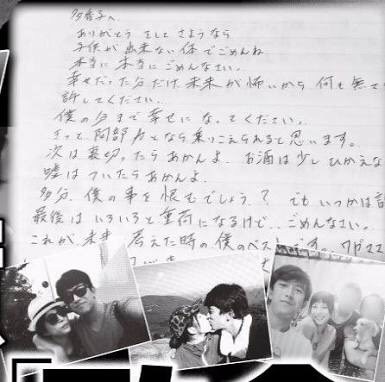 多香子へ
ありがとう そして さようなら
子供が出来ない体でごめんね
本当に本当にごめんなさい。
幸せだった分だけ未来が怖いから 何も無
許してください。
僕の分まで幸せになってください。
きっと阿部力となら乗りこえられると思います。
次は裏切ったらあかんよ。お酒は少しひかえな
嘘はついたらあかんよ。
多分、僕の事を恨むでしょう? でもいつかは
最後はいろいろと重荷になるけど..ごめんなさい。
これが、未来 考えた時の僕のベストです。